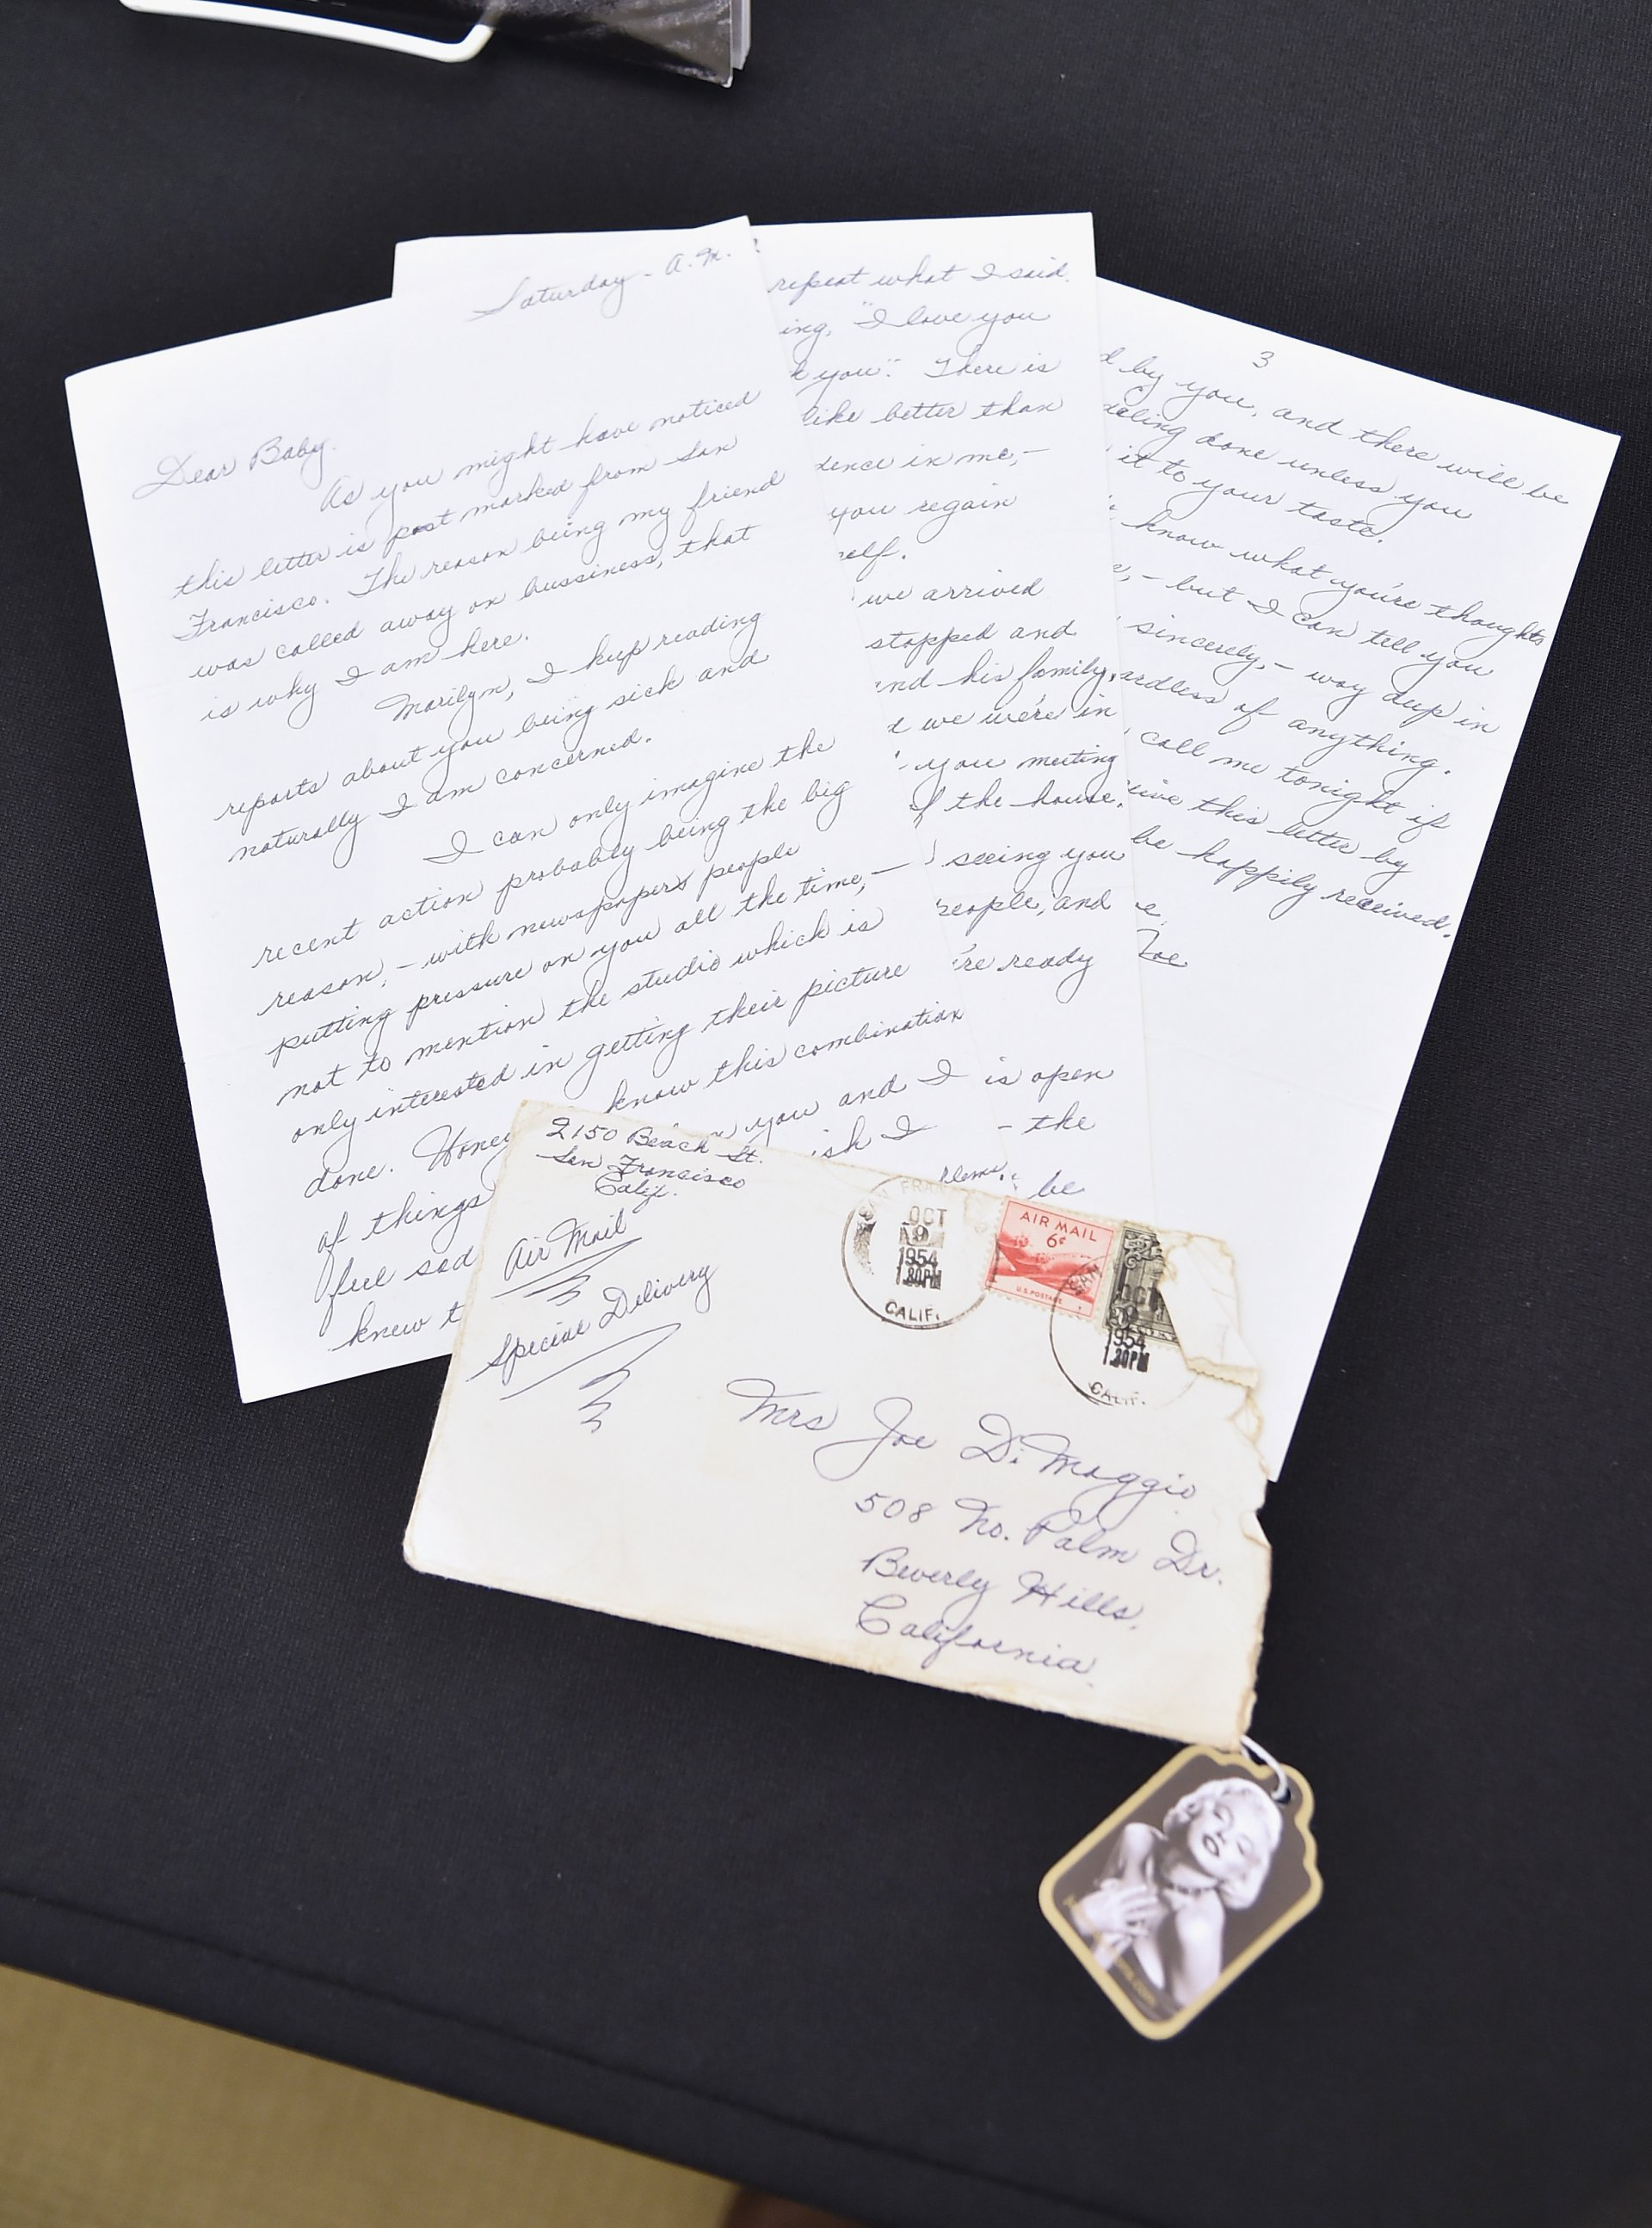 Saturday - A.M.
Dear Baby,
As you might have noticed
this letter is post marked from San
Francisco. The reason being my friend
was called away on bussiness, that
is why I am here.
Marilyn, I keep reading
reports about you being sick and
naturally I am concerned.
I can only imagine the
recent action probably being the big
reason, - with newspapers people
putting pressure on you all the time, -
not to mention the studio which is
only interested in getting their picture
done. Honey know this combination
of things
feel sad
knew t
repeat what I said.
ing, "I love you
k you". There is
like better than
dence in me, -
you regain
self.
we arrived
stopped and
and his family,
we we're in
you meeting
of the house,
seeing you
people, and
're ready
you and I is open
ish I - the
lems. be
3
d by you, and there will be
deling done unless you
it to your taste.
know what you're thoughts
e, - but I can tell you
sincerely, - way deep in
ardless of anything.
call me tonight if
eive this letter by
be happily received.
e,
Joe
2150 Beach St.
San Francisco
Calif.
Air Mail
Special Delivery
SAN FRAN
OCT
9
1954
1.30PM
CALIF.
AIR MAIL
6¢
U.S. POSTAGE
SAN
OCT
9
1954
1.30PM
CALIF.
Mrs Joe DiMaggio
508 No. Palm Dr.
Beverly Hills,
California